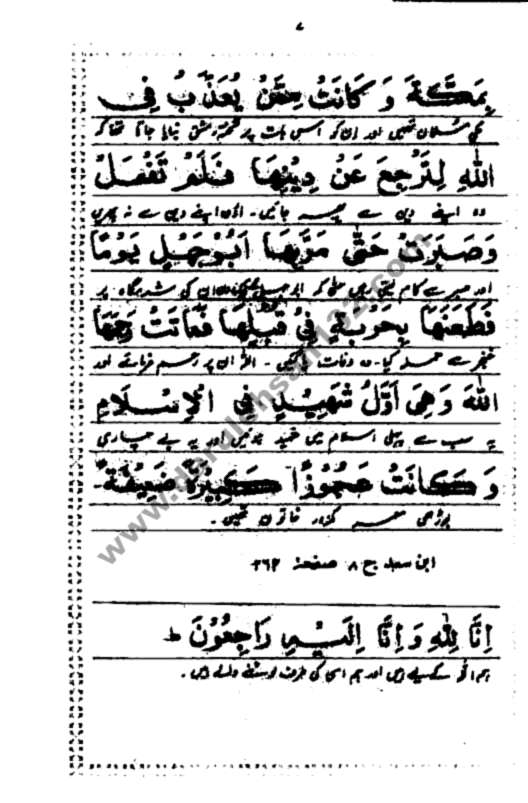 ٧
بِمَكَّةَ وَكَانَتْ مِمَّنْ يُعَذَّبُ فِي
بھی مسلمان تھیں اور ان کو اس بات پر تختۂ مشق بنایا جاتا تھا کہ
اللهِ لِتَرْجِعَ عَنْ دِيْنِهَا فَلَمْ تَفْعَلْ
وہ اپنے دین سے پھر جائیں۔ لیکن اپنے دین سے نہ پھریں
وَصَبَرَتْ حَتّٰى مَرَّبِهَا اَبُوْجَهْلٍ يَوْمًا
اور صبر سے کام لیتی رہیں حتی کہ ابوجہل ان کی شرمگاہ پر
فَطَعَنَهَا بِحَرْبَةٍ فِيْ قُبُلِهَا فَمَاتَتْ رَحِمَهَا
خنجر سے حملہ کیا۔ وہ وفات پاگئیں۔ اللہ ان پر رحم فرمائے اور
اللهَ وَهِيَ اَوَّلُ شَهِيْدٍ فِي الْاِسْلَامِ
یہ سب سے پہلی اسلام میں شہید ہوئیں اور یہ بے چاری
وَكَانَتْ عَجُوْزًا كَبِيْرَةً ضَعِيْفَةً۔
بوڑھی کمزور خاتون تھیں۔
ابن سعد ج ٨ صفحہ ٢٦٤
اِنَّا لِلّٰهِ وَاِنَّا اِلَيْهِ رَاجِعُوْنَ ط
ہم اللہ کے لیے ہیں اور ہم اسی کی طرف لوٹنے والے ہیں۔